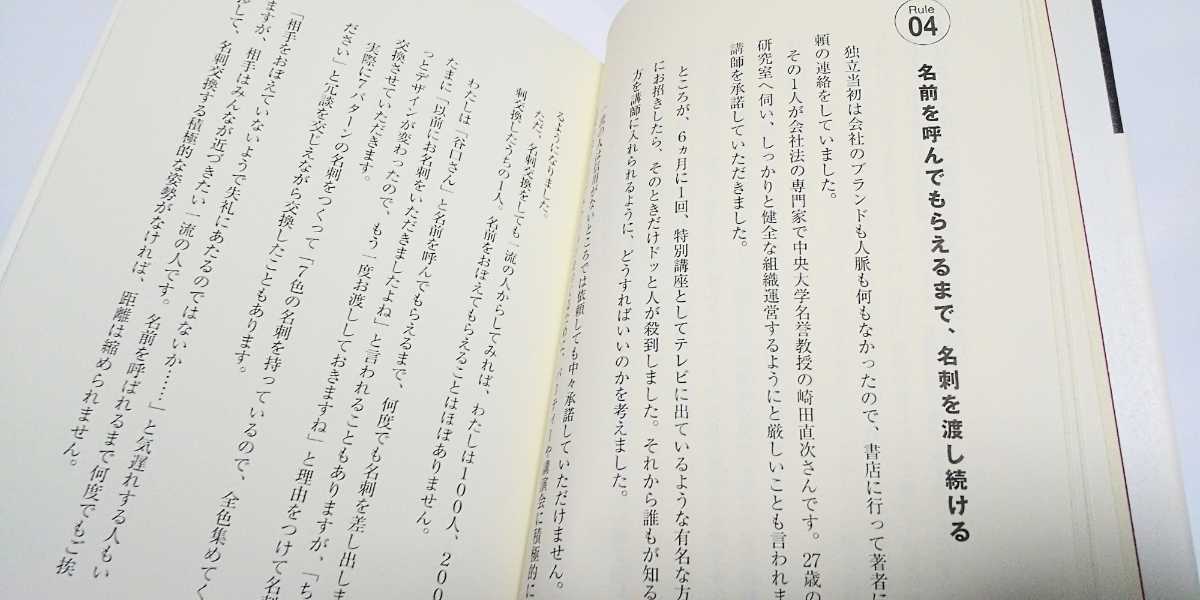 Rule
04
名前を呼んでもらえるまで、名刺を渡し続ける
独立当初は会社のブランドも人脈も何もなかったので、書店に行って著者に
頼の連絡をしていました。
その1人が会社法の専門家で中央大学名誉教授の崎田直次さんです。27歳の
研究室へ伺い、しっかりと健全な組織運営するようにと厳しいことも言われま
講師を承諾していただきました。
ところが、6ヵ月に1回、特別講座としてテレビに出ているような有名な方
にお招きしたら、そのときだけドッと人が殺到しました。それから誰もが知る
方を講師に入れられるように、どうすればいいのかを考えました。
ないところでは依頼しても中々承諾していただけません。
講演会に積極的に
るようになりました。
ただ、名刺交換をしても一流の人からしてみれば、わたしは100人、200
刺交換したうちの1人。名前をおぼえてもらえることはほぼありません。
わたしは「谷口さん」と名前を呼んでもらえるまで、何度でも名刺を差し出しま
たまに「以前にお名刺をいただきましたよね」と言われることもありますが、「ち
っとデザインが変わったので、もう一度お渡ししておきますね」と理由をつけて名
交換させていただきます。
実際に7パターンの名刺をつくって「7色の名刺を持っているので、全色集めてく
ださい」と冗談を交じえながら交換したこともあります。
「相手をおぼえていないようで失礼にあたるのではないか……」と気遅れする人もい
ますが、相手はみんなが近づきたい一流の人です。名前を呼ばれるまで何度でもご挨
して、名刺交換する積極的な姿勢がなければ、距離は縮められません。